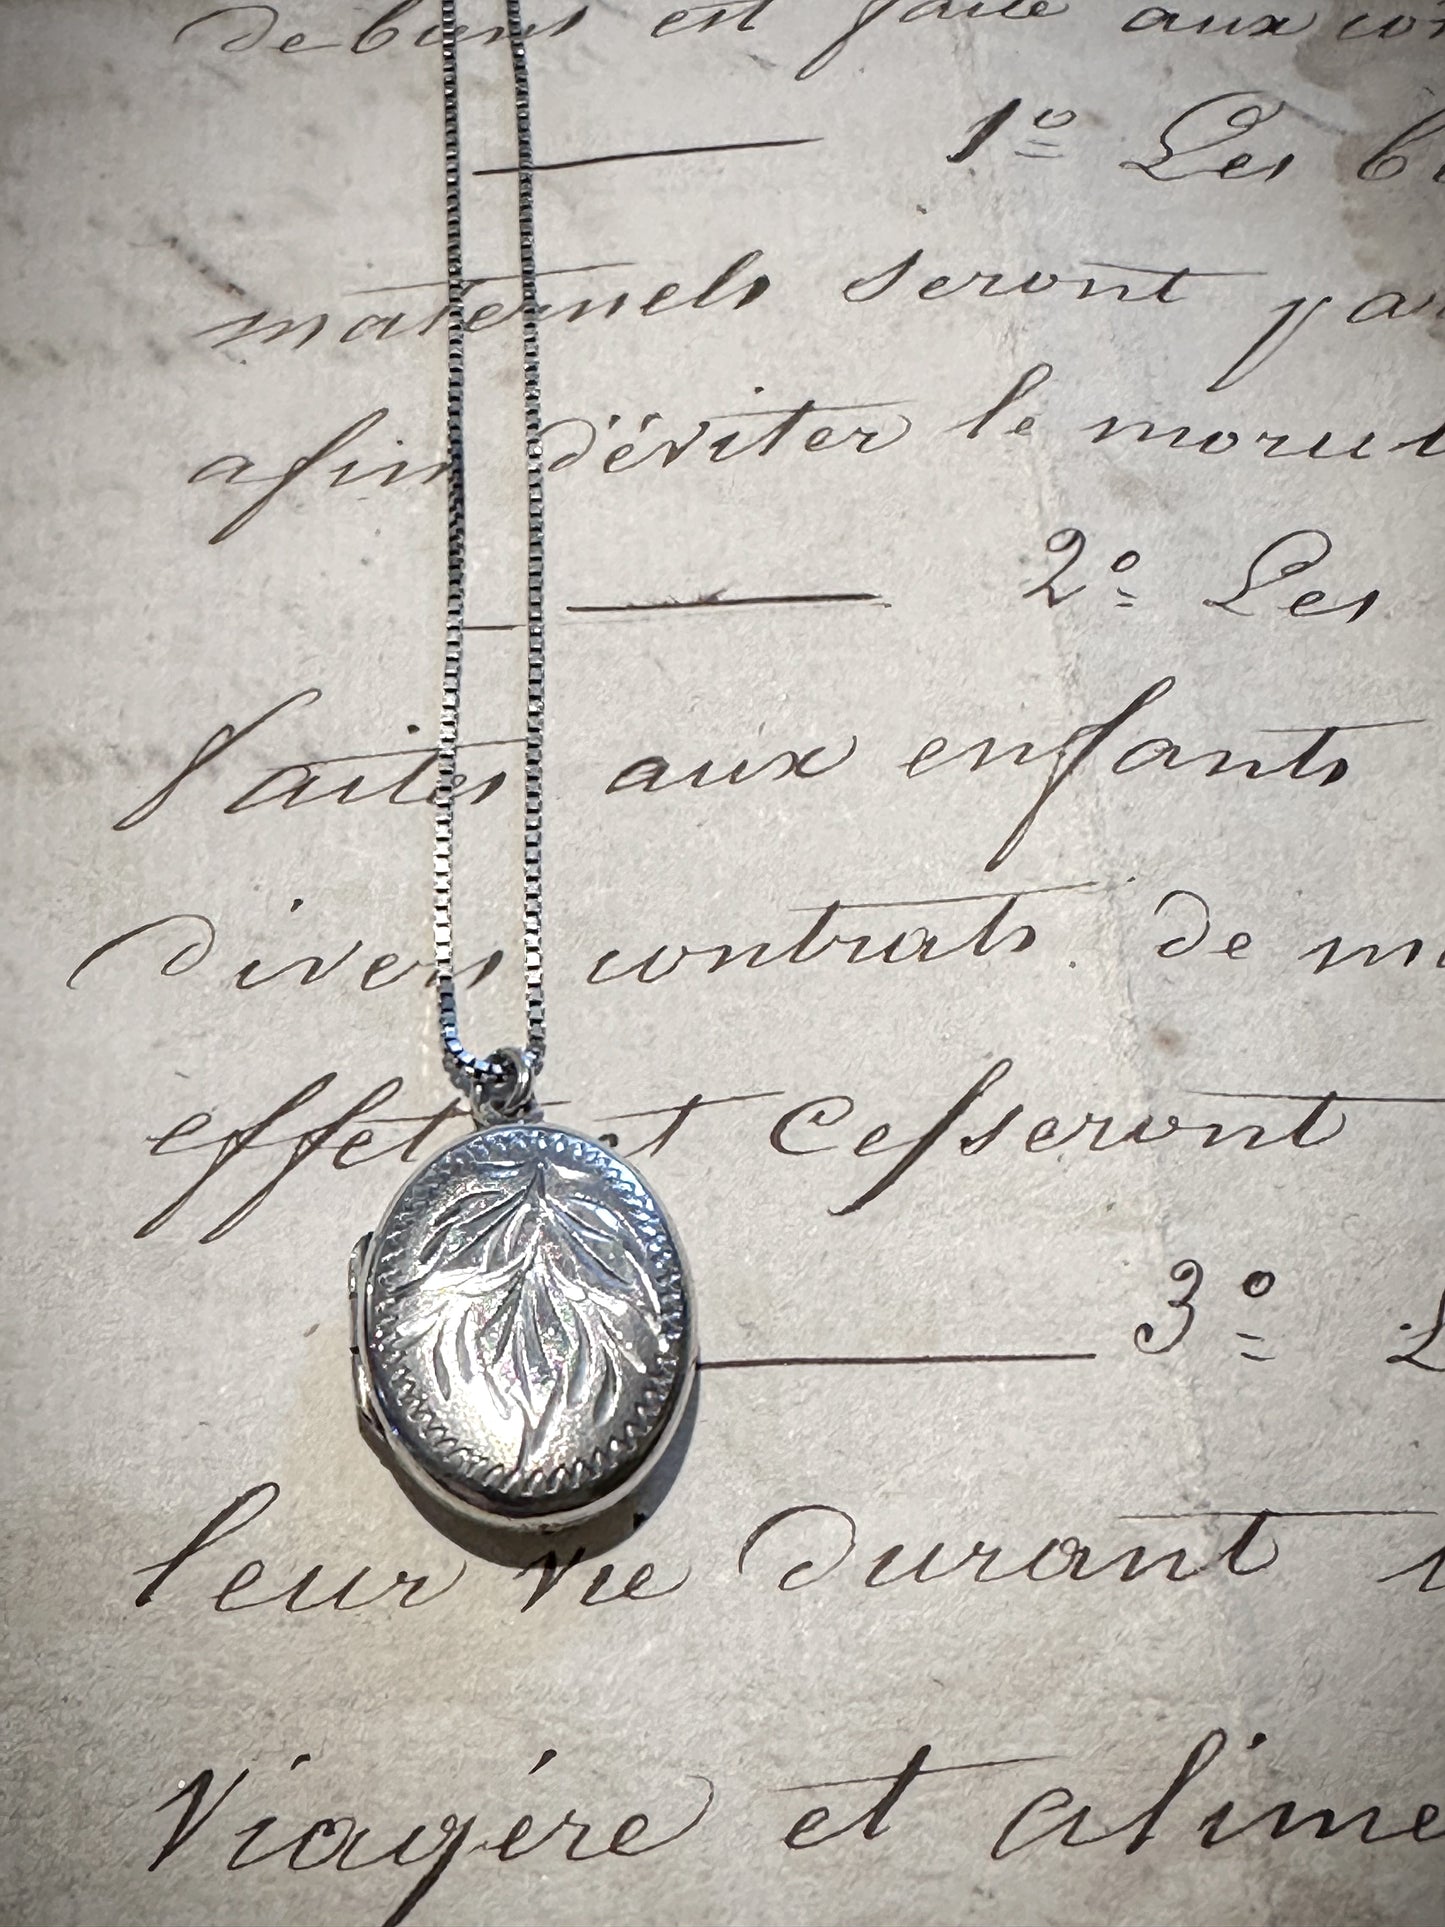 est faite aux
1º Les
maternels seront
afin d'éviter le
2º Les
faites aux enfants
divers contrats de
effet et cesseront
3º
leur vie durant
Viagère et